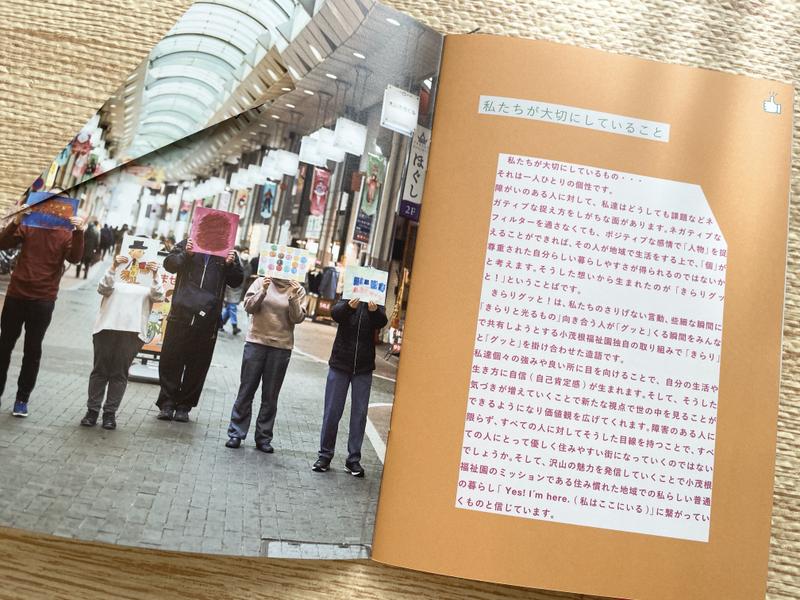 ほぐし
2F
私たちが大切にしていること
私たちが大切にしているもの・・・
それは一人ひとりの個性です。
障がいのある人に対して、私達はどうしても課題などネ
ガティブな捉え方をしがちな面があります。ネガティブな
フィルターを通さなくても、ポジティブな感情で「人物」を捉
えることができれば、その人が地域で生活をする上で、「個」が
尊重された自分らしい暮らしやすさが得られるのではないか
と考えます。そうした想いから生まれたのが「きらりグッ
と!」ということばです。
きらりグッと!は、私たちのさりげない言動、些細な瞬間に
「きらりと光るもの」向き合う人が「グッと」くる瞬間をみんな
で共有しようとする小茂根福祉園独自の取り組みで「きらり」
と「グッと」を掛け合わせた造語です。
私達個々の強みや良い所に目を向けることで、自分の生活や
生き方に自信(自己肯定感)が生まれます。そして、そうした
気づきが増えていくことで新たな視点で世の中を見ることが
できるようになり価値観を広げてくれます。障害のある人に
限らず、すべての人に対してそうした目線を持つことで、すべ
ての人にとって優しく住みやすい街になっていくのではない
でしょうか。そして、沢山の魅力を発信していくことで小茂根
福祉園のミッションである住み慣れた地域での私らしい普通
の暮らし「Yes! I'm here.(私はここにいる)」に繋がってい
くものと信じています。